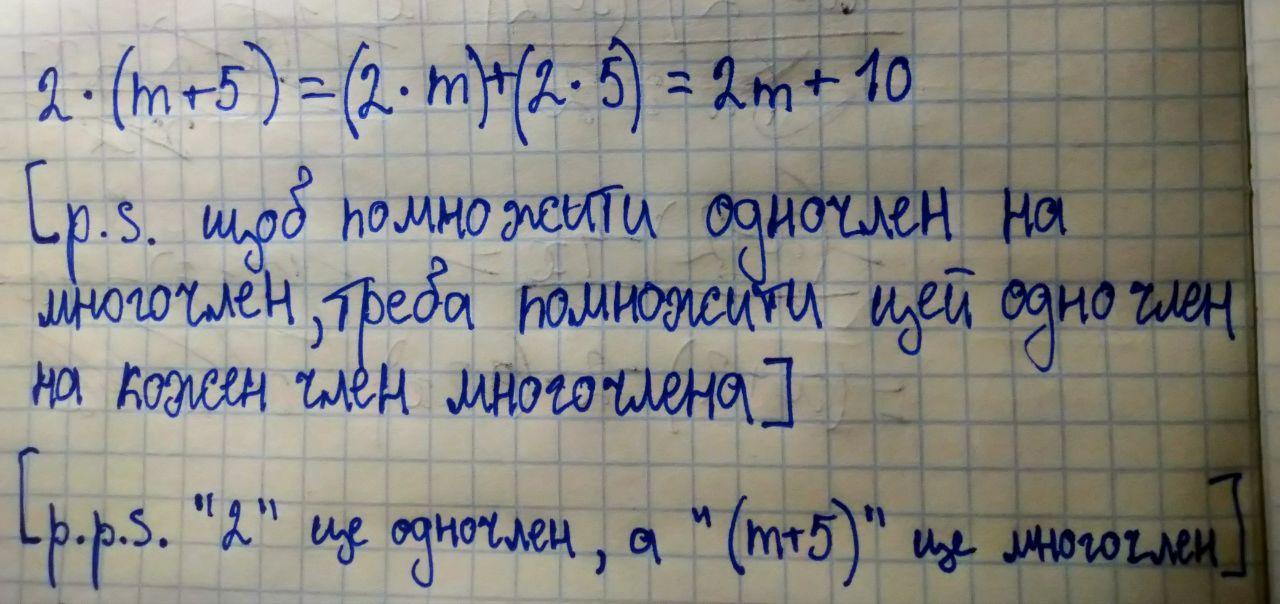 2 · (m+5) = (2 · m)+(2 · 5) = 2m + 10
[p.s. щоб помножити одночлен на
многочлен, треба помножити цей одночлен
на кожен член многочлена]
[p.p.s. "2" це одночлен, а "(m+5)" це многочлен]